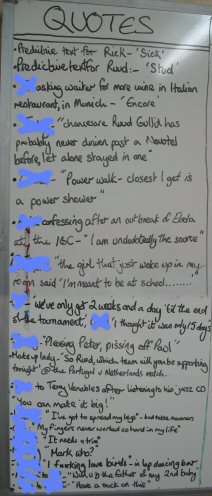 QUOTES
• Predictive text for Rick - 'Sick'
• Predictive text for Ruud: - 'Stud'
• asking waiter for more wine in Italian
restaurant, in Munich - "Encore"
• "chanceore Ruud Gullit has
probably never driven past a Novotel
before, let alone stayed in one"
• "Power walk - closest I get is
a power shower"
• confessing after an outbreak of Ebola
at the IBC - "I am undoubtedly the source"
• "the girl that just woke up in my
room said 'I'm meant to be at school.......'"
- we've only got 2 weeks and a day 'til the end
of the tournament, 'I thought it was only 15 days'
"Pleasing Peter, pissing off Paul"
Make up lady - 'So Ruud, which team will you be supporting
tonight' @ the Portugal v Netherlands match.
to Terry Venables after listening to his jazz CD
"You can make it big!"
"I've got to spread my legs" -
"My fingers never worked so hard in my life"
"It needs a trim"
"Mark who?"
"I fucking love birds - in lap dancing bar
"Will U b the father of my 2nd baby"
"Have a suck on this"